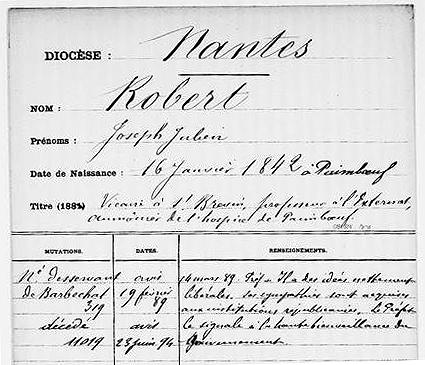 DIOCÈSE : Nantes
NOM : Robert
Prénoms : Joseph Julien
Date de Naissance : 16 Janvier 1842 à Paimbœuf
Titre (188 ) Vicaire à St Brévin, professeur à l'Externat,
aumônier de l'hospice de Paimbœuf.
MUTATIONS. DATES. RENSEIGNEMENTS.
Né desservant avis 14 mars 89. Préf = il a des idées nettement
de Barbechat 19 février libérales. Ses sympathies sont acquises
319 89 aux institutions républicaines. Le Préfet
décédé avis le signale à la haute bienveillance du
11019 23 juin 94 Gouvernement.